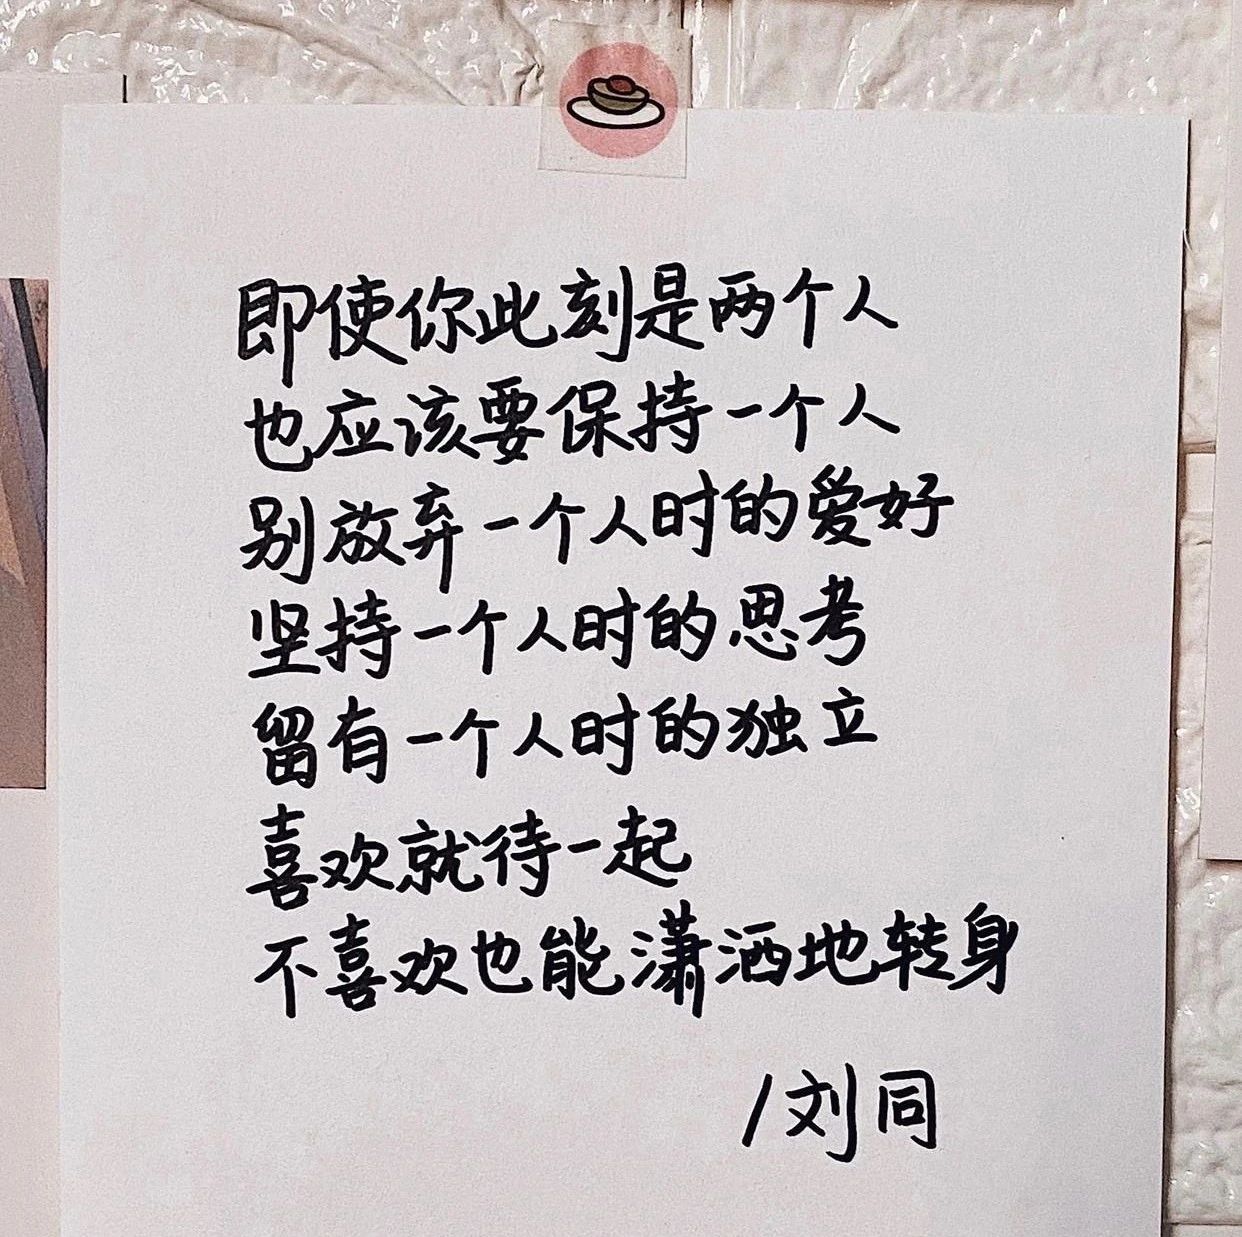 即使你此刻是两个人
也应该要保持一个人
别放弃一个人时的爱好
坚持一个人时的思考
留有一个人时的独立
喜欢就待一起
不喜欢也能潇洒地转身
/刘同